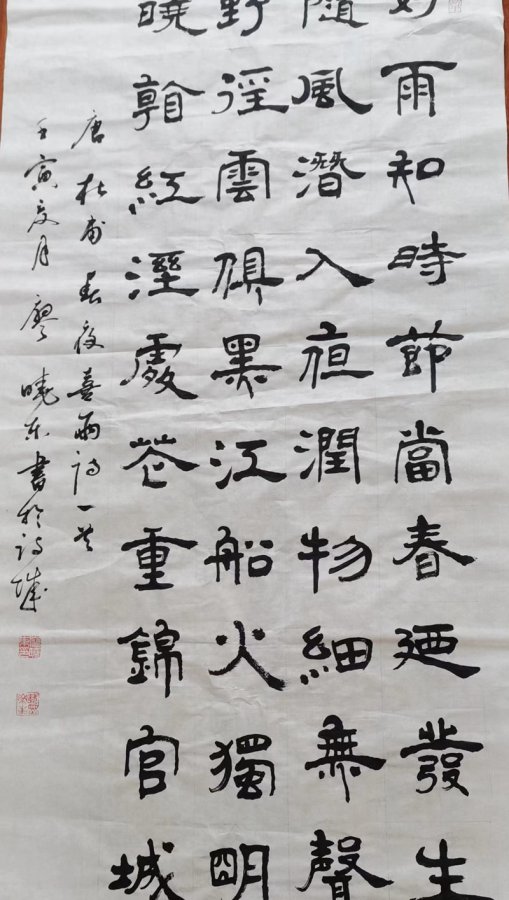 好雨知時節當春廼發生
隨風潛入夜潤物細無聲
野徑雲俱黑江船火獨明
曉看紅溼處花重錦官城
唐杜甫春夜喜雨詩一首
壬寅夏月廖曉东書於詩城